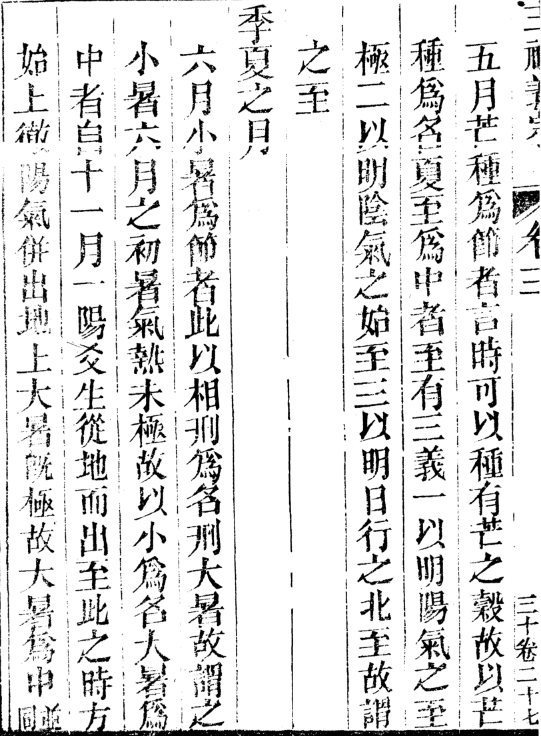 三禮義宗 卷三 三十卷二十七
五月芒種爲節者言時可以種有芒之穀故以芒
種爲名夏至爲中者至有三義一以明陽氣之至
極二以明陰氣之始至三以明日行之北至故謂
之至
季夏之月
六月小暑爲節者此以相刑爲名刑大暑故謂之
小暑六月之初暑氣熱未極故以小爲名大暑爲
中者自十一月一陽爻生從地而出至此之時方
始上徹陽氣併出地上大暑旣極故大暑爲中並同